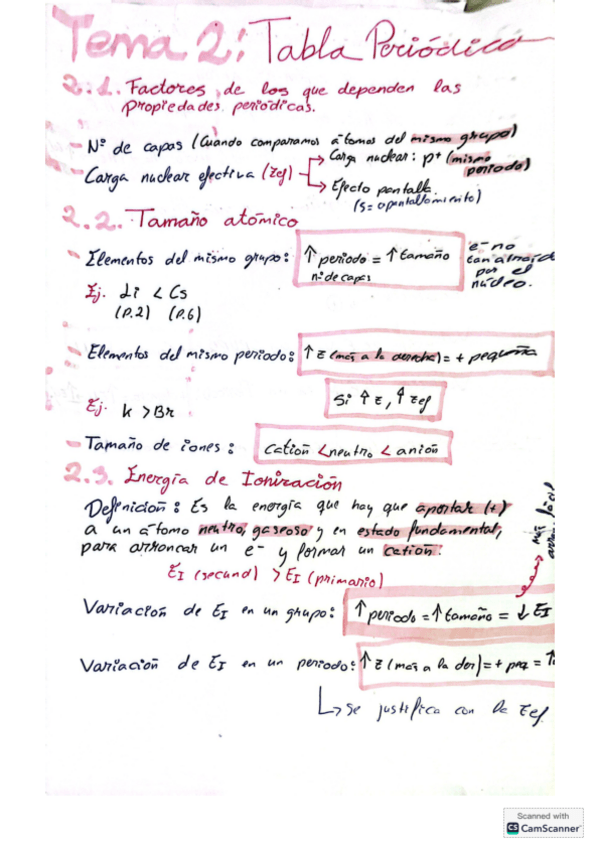 Tema 2: Tabla Periódica
2.1. Factores de los que dependen las
propiedades periódicas.
- Nº de capas (Cuando comparamos átomos del mismo grupo)
- Carga nuclear efectiva (Zef) → Carga nuclear: p+ (mismo periodo)
→ Efecto pantalla.
(s = apantallamiento)
2.2. Tamaño atómico
- Elementos del mismo grupo: ↑ periodo = ↑ tamaño
nº de capas
e- no
tan atraído
por el
núcleo.
Ej. Li < Cs
(P.2) (P.6)
- Elementos del mismo periodo: ↑ Z (más a la derecha) = + pequeño
Si ↑ Z, ↑ Zef
Ej. K > Br
- Tamaño de iones: catión < neutro < anión
2.3. Energía de Ionización
Definición: Es la energía que hay que aportar (+)
a un átomo neutro, gaseoso y en estado fundamental,
para arrancar un e- y formar un catión.
más fácil
EI (secund) > EI (primario)
Variación de EI en un grupo: ↑ periodo = ↑ tamaño = ↓ EI
Variación de EI en un periodo: ↑ Z (más a la der) = + peq = ↑
↳ se justifica con la Zef
Scanned with
CS CamScanner